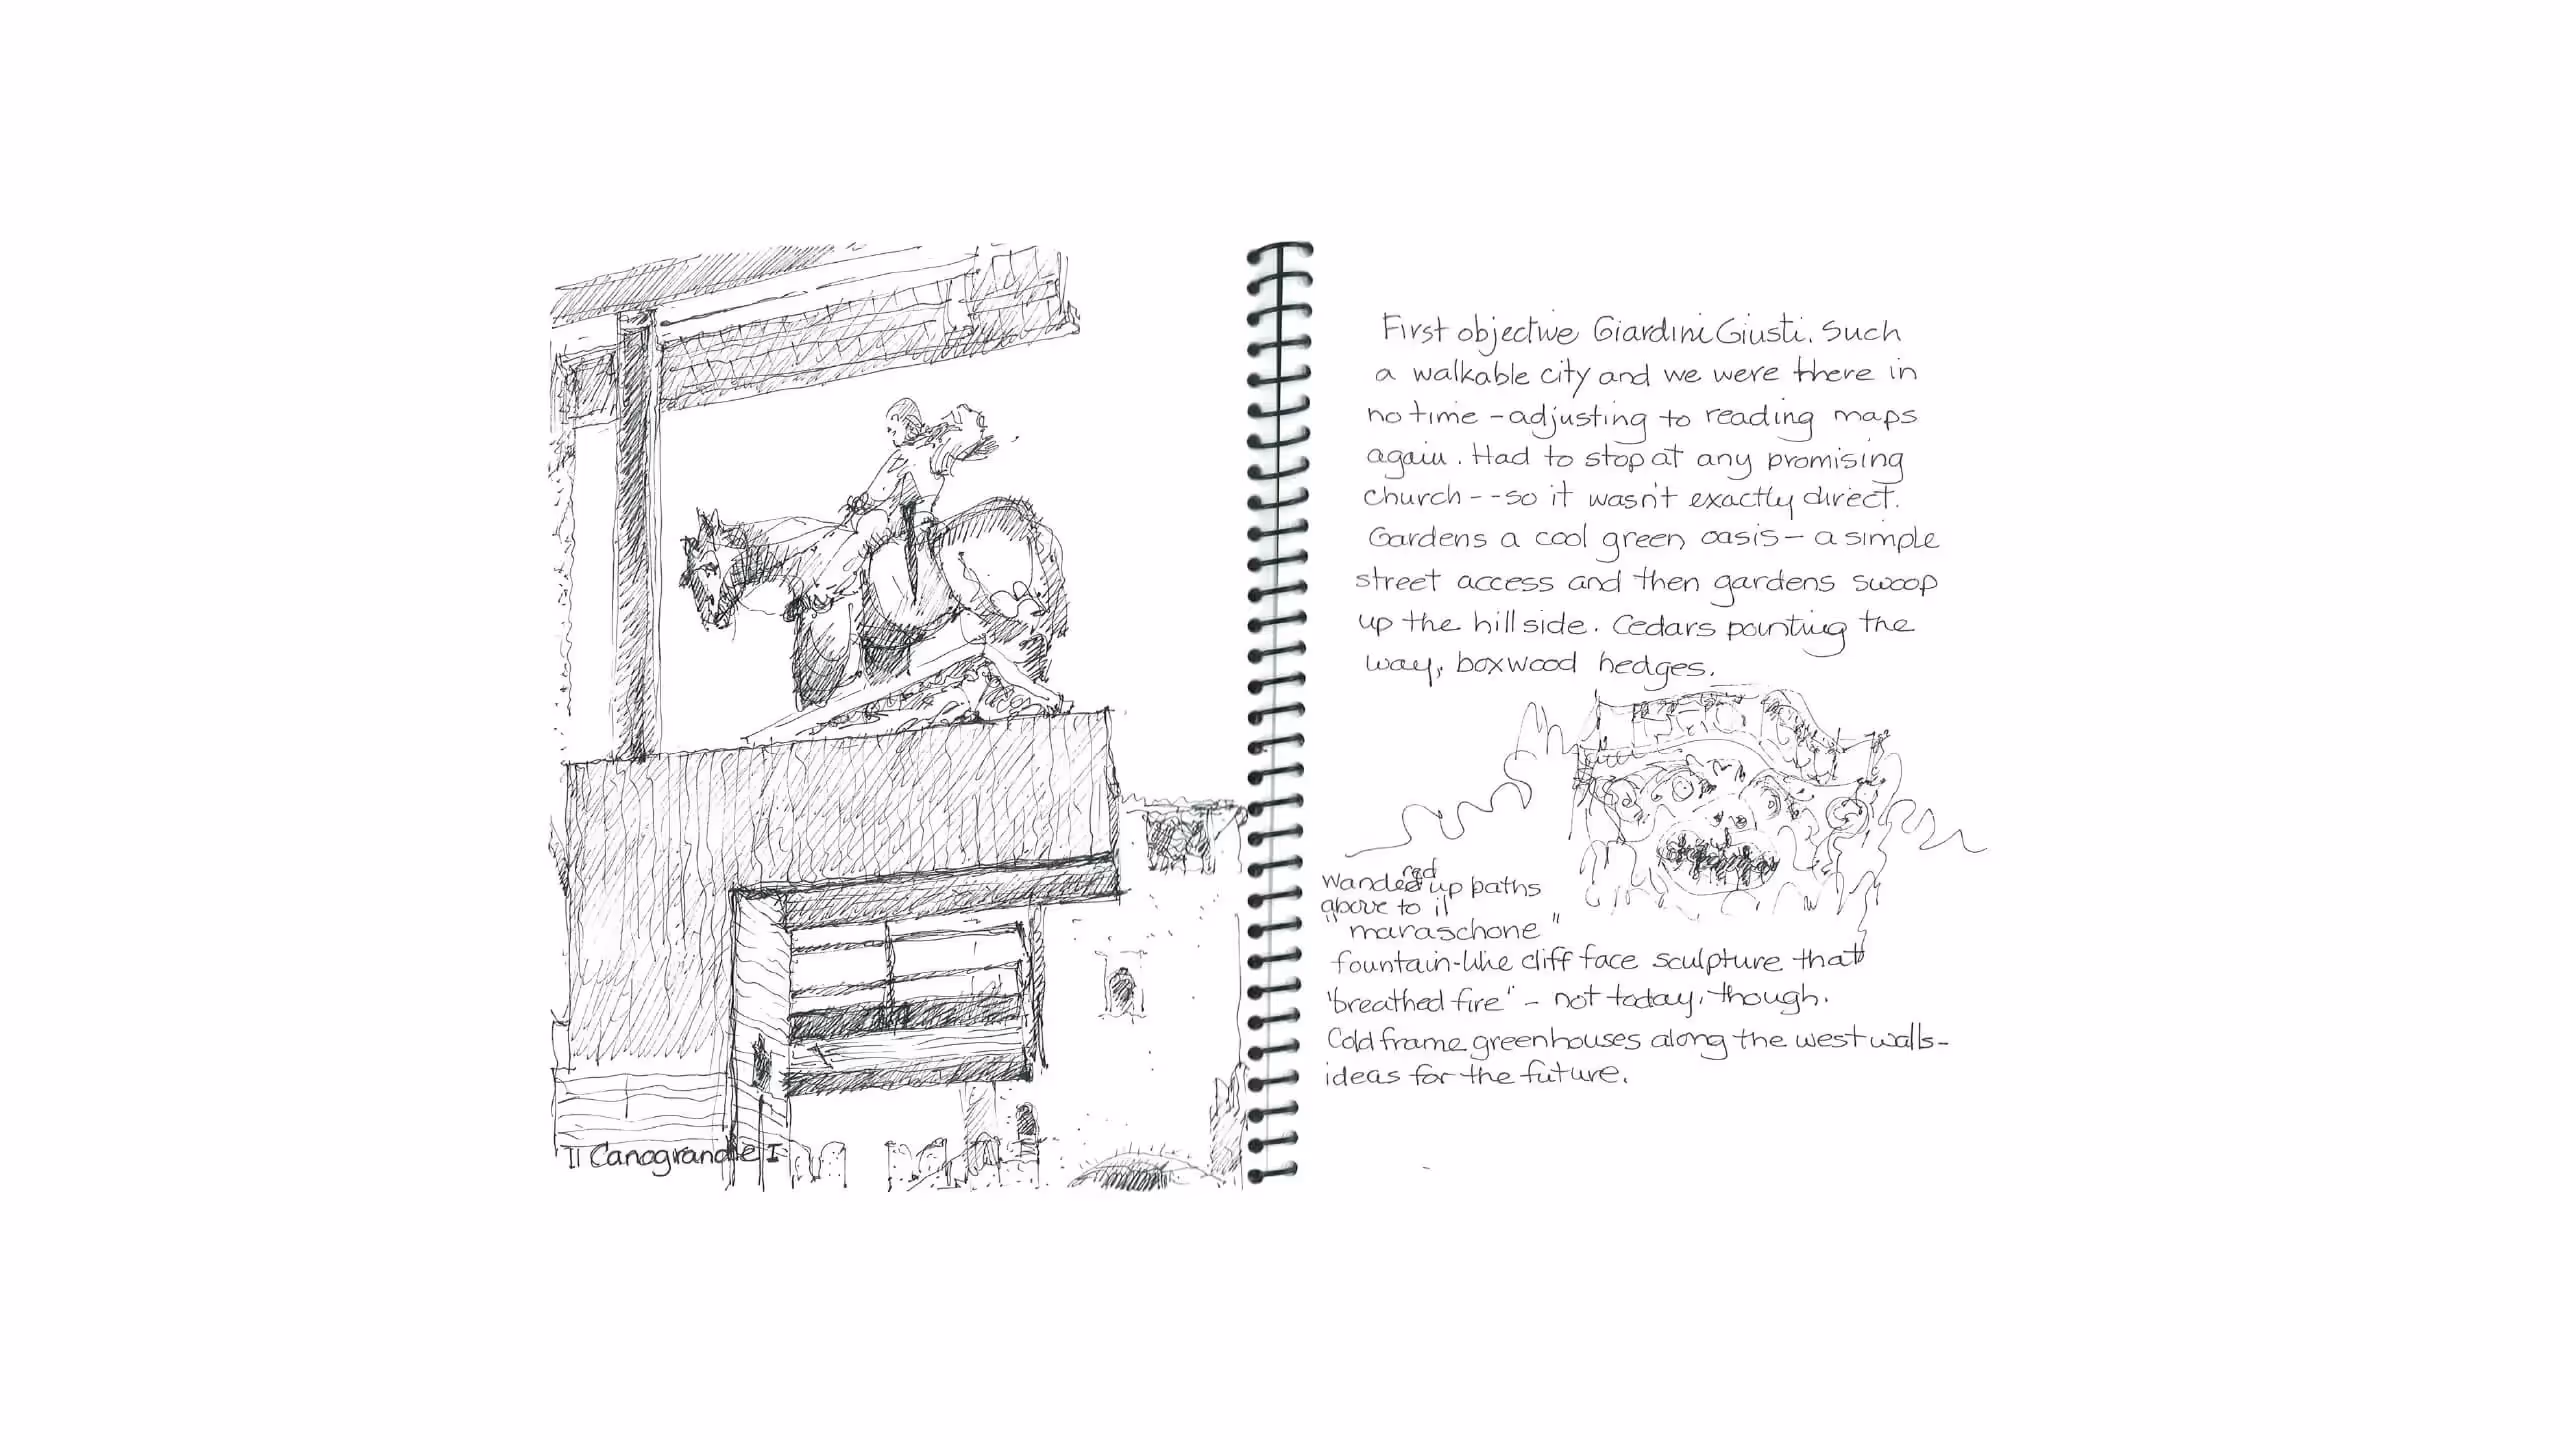 Il Canogrande I
First objective Giardini Giusti. Such
a walkable city and we were there in
no time - adjusting to reading maps
again. Had to stop at any promising
church - - so it wasn't exactly direct.
Gardens a cool green oasis - a simple
street access and then gardens swoop
up the hillside. Cedars pointing the
way, boxwood hedges.
wandered up paths
above to il
"maraschone"
fountain-like cliff face sculpture that
'breathed fire" - not today, though.
Cold frame greenhouses along the west walls-
ideas for the future.